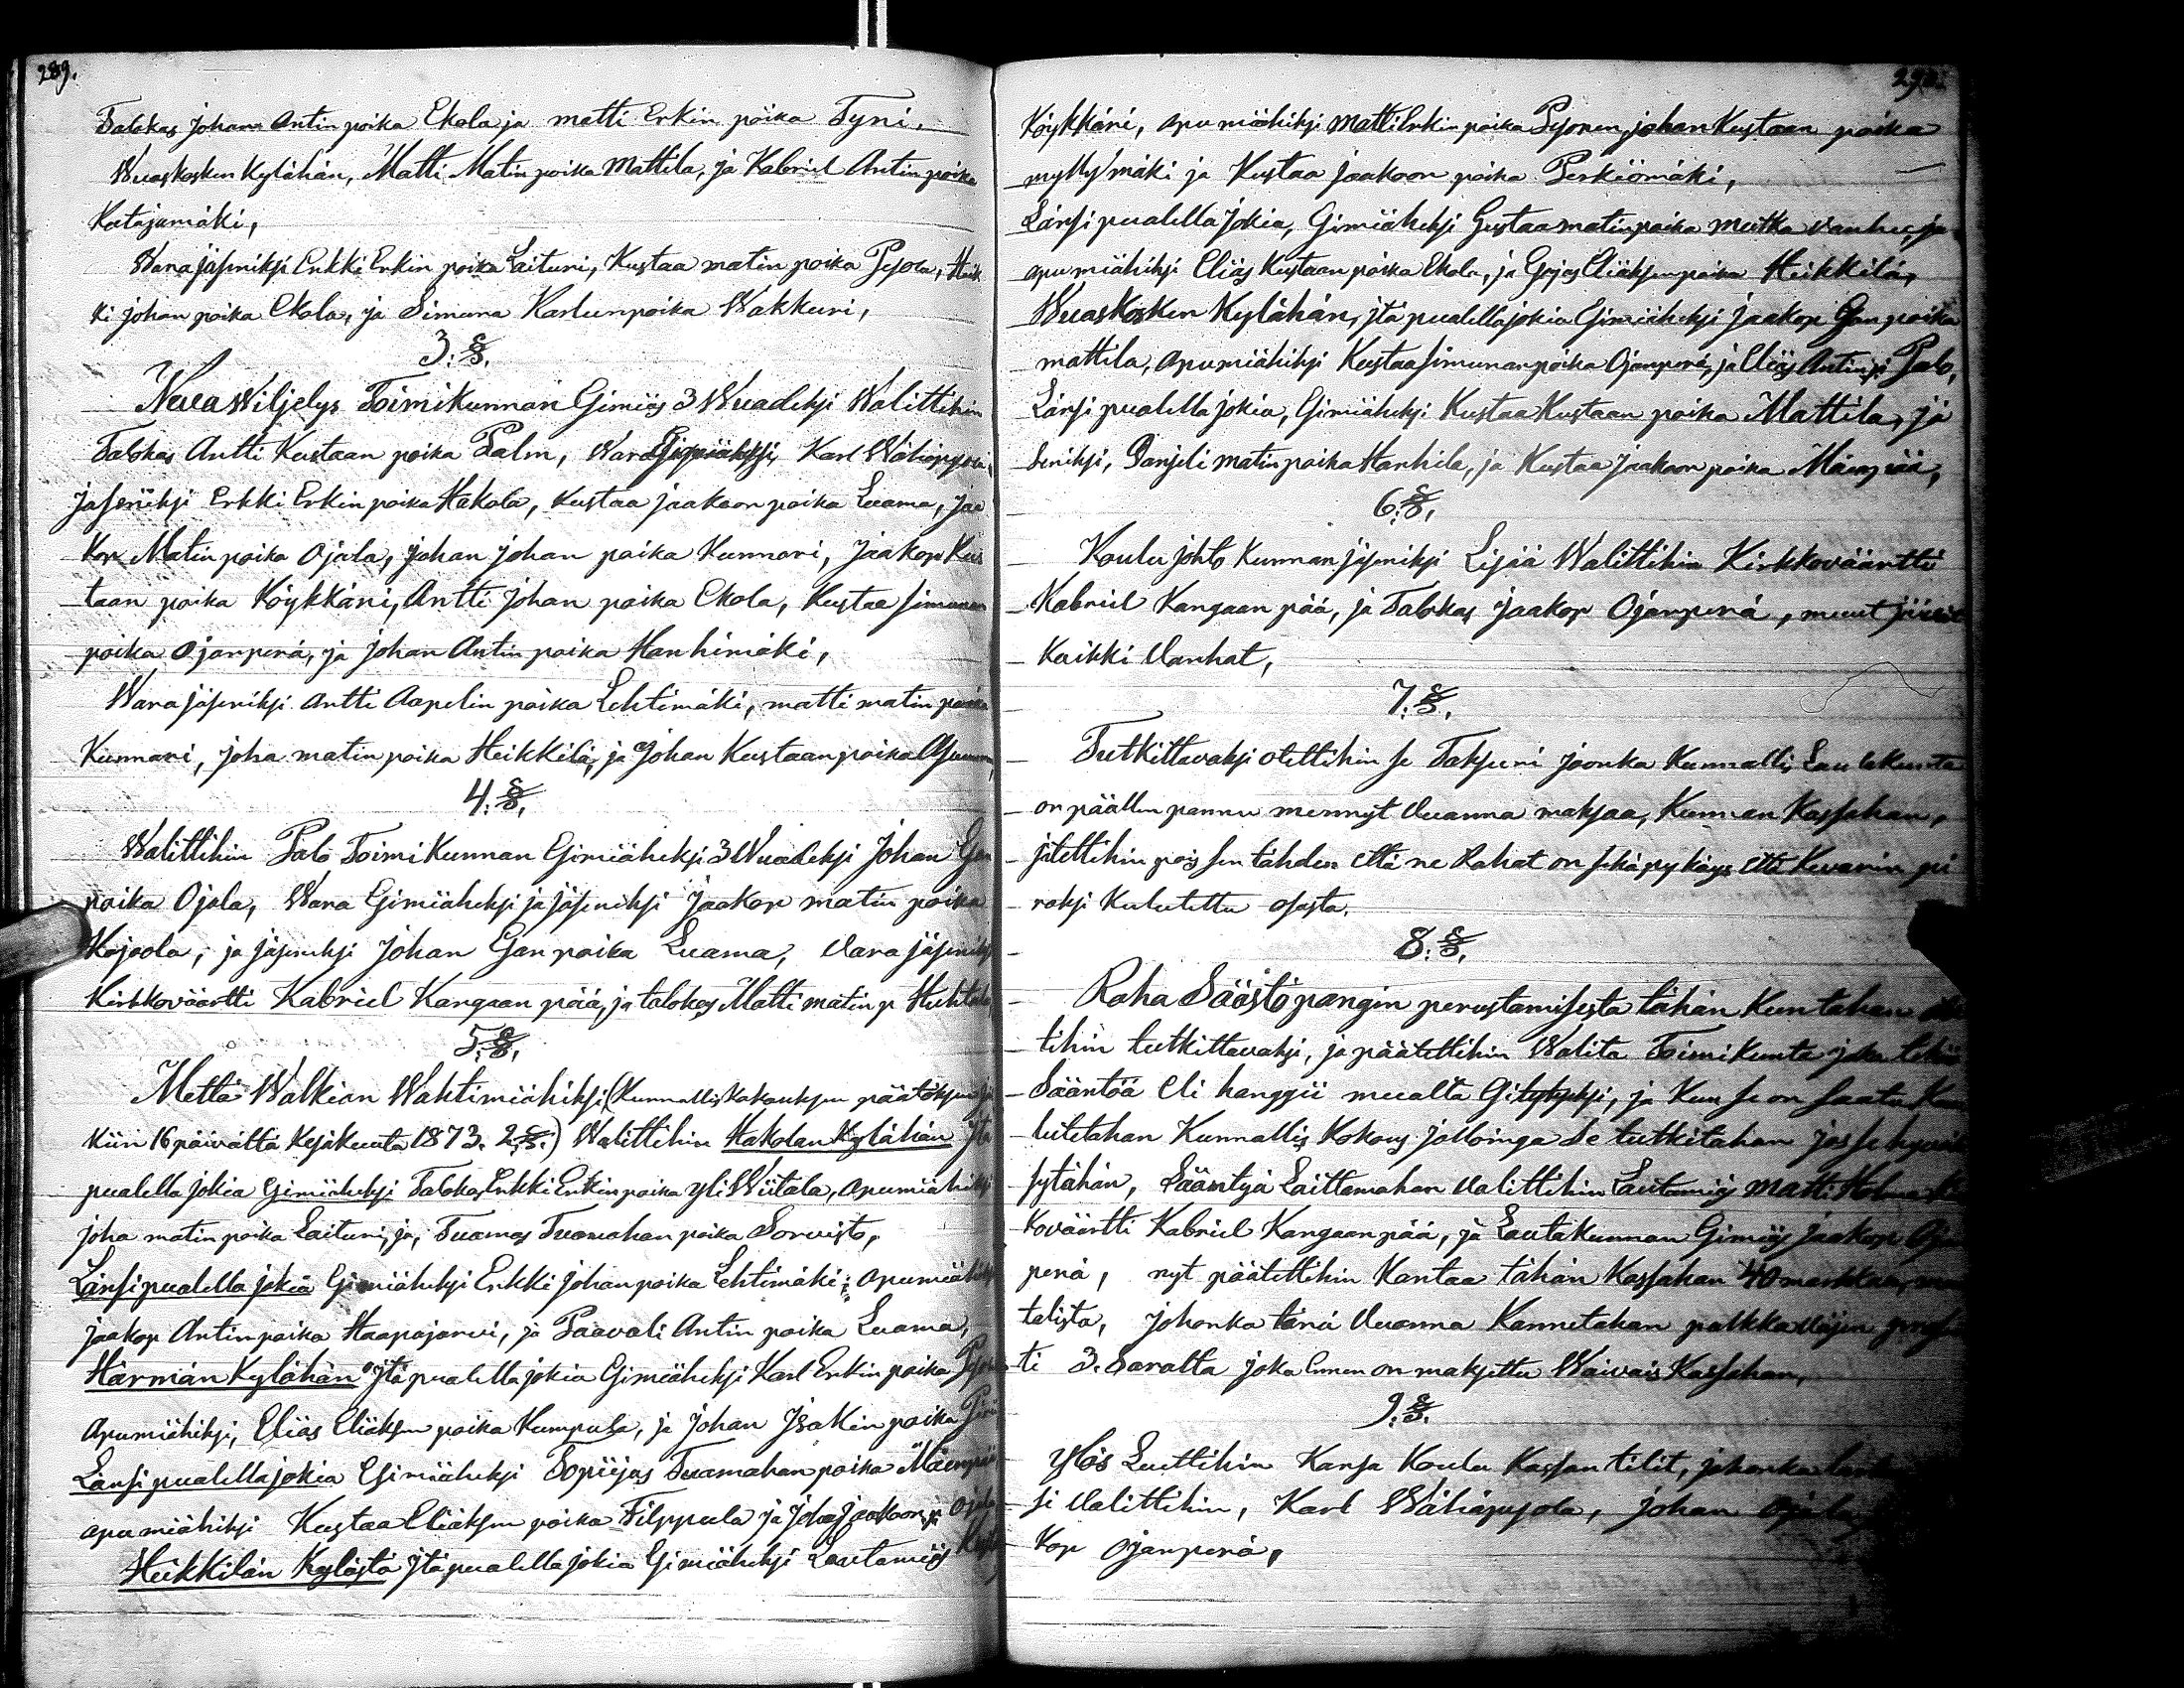 289.
Talokas Johan Antin poika Ekola ja matti Erkin poika Tyni,
Wuoskosken Kylähän, Matti Matin poika Mattila, ja Kabriel Antin poika
Katajamäki,
Wara jäseniksi Erkki Erkin poika Laituri, Kustaa matin poika Pesola, Heik
ki Johan poika Ekola, ja Simuna Karlunpoika Wakkuri,
3. §.
Neva Wiljelys Toimikunnan Esimies 3 Wuadeksi Walittihin
Talokas Antti Kustaan poika Palm, Wara Esimiäheksi, Karl
Jäseniksi Erkki Erkin poika Hakola, Kustaa jaakoon poika Luama, Jaa
kop Matin poika Ojala, Johan Johan poika Kunnari, Jaakop Kus
taan poika Köykkäni, Antti Johan poika Ekola, Kustaa simunan
poika Ojanperä, ja Johan Antin poika Hanhimäki,
Wara jäseniksi Antti Aapelin poika Lehtimäki, matti matin poika
Kunnari, Joha matin poika Heikkilä, ja Johan Kustaanpoika
4. §.
Walittihin Palo Toimi Kunnan Esimiäheksi 3 Wuadeksi Johan
poika Ojala, Wara Esimiäheksi ja jäseniksi Jaakop matin poika
Kojoola, ja jäseneksi Johan poika Luama, Vara jäseniksi
Kirkkoväärtti Kabriel Kangaan pää, ja talokas Matti matin p Huhtala
5. §.
Mettä Walkian Wahtimiähiksi (Kunnallis Kokouksen päätöksen
kiin 16 päivältä Kesäkuuta 1873. 2. §.) Walittihin Hakolan Kylähän Itä
puolella jokia Esimiäheksi Talokas Erkki Erkin poika yli Wiitala, apumiähiksi
Joha matin poika Laituri, ja, Tuomas Tuomahan poika Sorvisto,
Länsi puolella jokia Esimiäheksi Erkki Johan poika Lehtimäki; apumiähiksi
Jaakop Antin poika Haapajarvi, ja Paavali Antin poika Luama,
Härmän Kylähän Itä puolella jokia Esimiäheksi Karl Erkin poika
Apumiähiksi, Eliäs Eliäksen poika Kumpula, ja Johan Isakin poika
Länsi puolella jokia Esimiäheksi Sopiijas Tuomahan poika Mäenpää
apumiähiksi Kustaa Eliäksen poika Filppula ja Joha Jaakoon p Ojala
Heikkilän Kylästä Itä puolella jokia Esimiäheksi Lautamies
290.
Köykkäni, apumiähiksi Matti Erkin poika Pesonen, johan Kustaan poika
myllymäki ja Kustaa Jaakoon poika Perkiömäki,
Länsi puolella Jokia, Esimiäheksi Gustaa matin poika mutka vanhee, ja
apumiähiksi Eliäs Kustaan poika Ekola, ja Esajas Eliäksen poika Heikkilä,
Wuoskosken Kylähän, Itä puolella jokia Esimiäheksi Jaakop poika
mattila, apumiähiksi Kustaa simunan poika Ojanperä, ja Eliäs Antin p Palo,
Länsi puolella jokia, Esimiäheksi Kustaa Kustaan poika Mattila, jä
seniksi, Danjeli matin poika Hanhila, ja Kustaa Jaakoon poika Mäenpää,
6. §.
Koulu johto Kunnan jäseniksi Lisää Walittihin Kirkkoväärtti
Kabriel Kangaan pää, ja Talokas Jaakop Ojanperä, muut jäivät
kaikki Vanhat,
7. §.
Tutkittavaksi otettihin se Taksieri jonka Kunnallis Lautakunta
on päällen pannu mennyt Vuanna maksaa, Kunnan Kassahan,
jätettihin pois sen tähden että ne Rahat on sekä pykäys että Kuvarin pii
raksi Kulutettu osasta.
8. §.
Raha Säästöpangin perustamisesta tähän Kuntahan
tihin tutkittavaksi, ja päätettihin Walita Toimikunta joka tekis
Sääntöä eli hanggii muualta Esityksi, ja Kun se on saatu
lutetahan Kunnallis Kokous jolloinga se tutkitahan jos se hyväk
sytähän, Sääntyjä Laittamahan Valittihin Lautamies Matti
koväärtti Kabriel Kangaan pää, ja Lautakunnan Esimies Jaakop Ojan
perä, nyt päätettihin Kantaa tähän Kassahan 40 markkaa,
talista, Johonka tänä Vuonna Kannetahan palkka
ti 3. Saralta joka Ennen on maksettu Waivais Kassahan,
9. §.
Ylös Luettihin Kansa Koulu Kassan tilit, johonka
si Valittihin, Karl Wähäpesola, Johan Ojala,
kop Ojanperä,